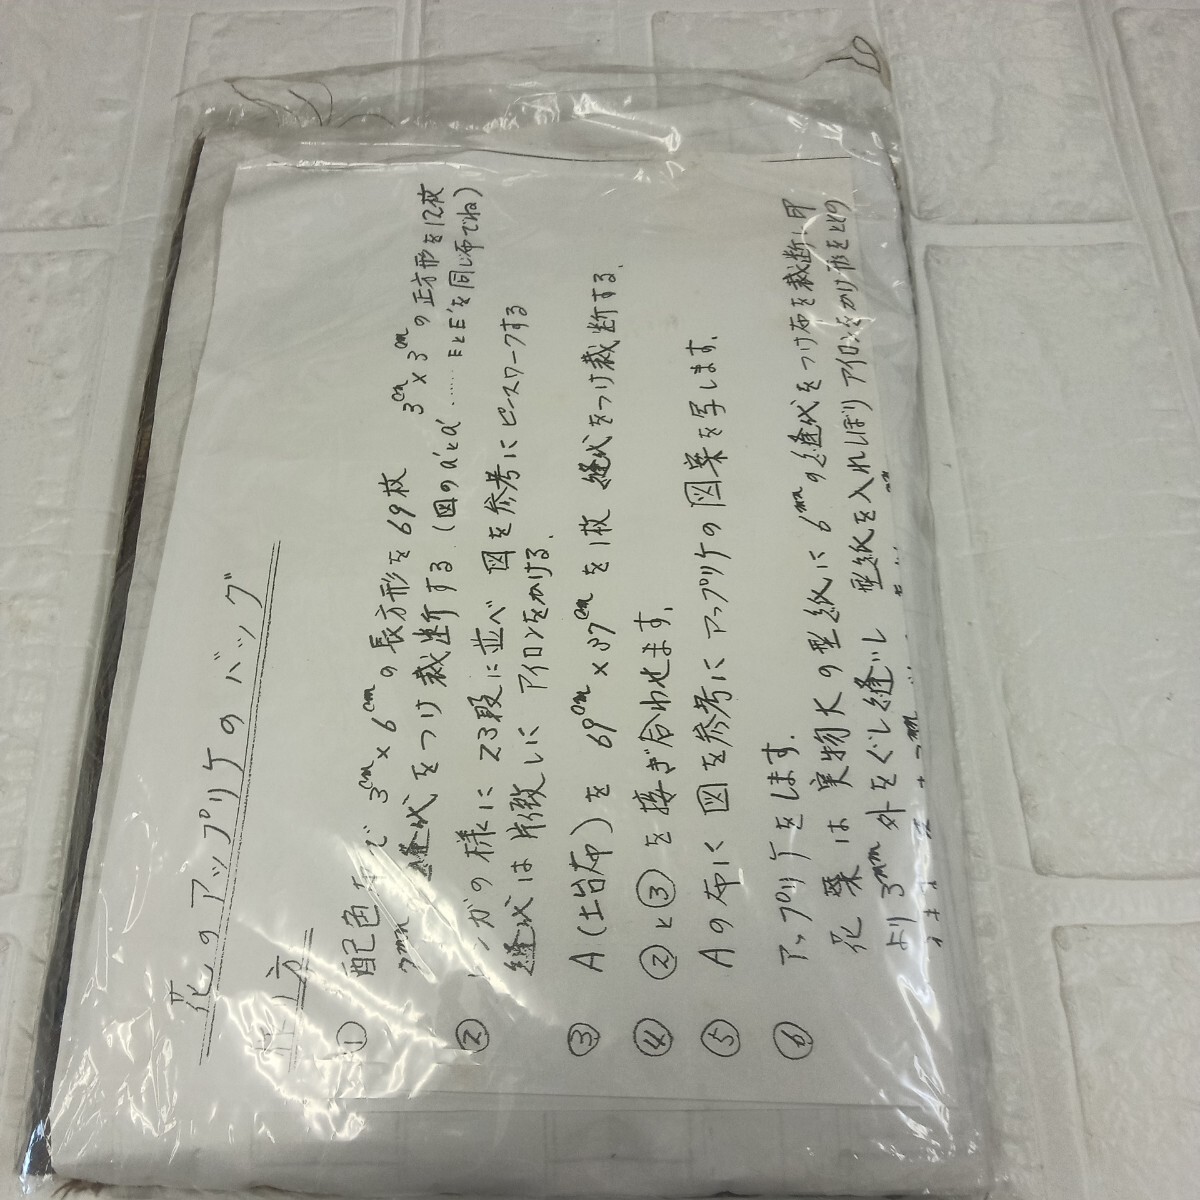 花のアップリケのバッグ
作り方
① 配色布で 3cm×6cmの長方形を69枚 3cm×3cmの正方形を12枚
7mm 縫代をつけ裁断する (図のaとa'……EとE'を同じ布でね)
② レンガの様に23段に並べ 図を参考にピースワークする
縫代は片倒しに アイロンをかける.
③ A(土台布)を 69cm×37cmを1枚 縫代をつけ裁断する.
④ ②と③を接ぎ合わせます.
⑤ Aの布に 図を参考にアップリケの図案を写します.
⑥ アップリケをします.
花 葉は 実物大の型紙に 6mmの縫代をつけ布を裁断し 印
より 3mm外をぐし縫いし 型紙を入れしぼり アイロンをかけ形をととの